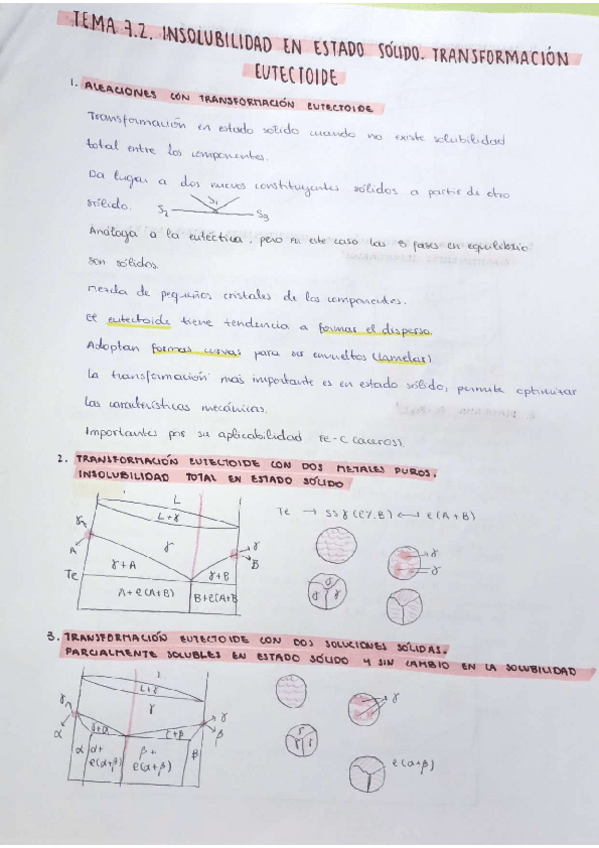 TEMA 7.2. INSOLUBILIDAD EN ESTADO SÓLIDO. TRANSFORMACIÓN
EUTECTOIDE
1. ALEACIONES CON TRANSFORMACIÓN EUTECTOIDE
Transformación en estado solido cuando no existe solubilidad
total entre los componentes.
Da lugar a dos nuevos constituyentes sólidos a partir de otro
sólido. S1
S2 S3
Análoga a la eutéctica, pero en este caso las 3 fases en equilibrio
son sólidos.
Mezcla de pequeños cristales de los componentes.
El eutectoide tiene tendencia a formar el disperso.
Adoptan formas curvas para ser envueltos (lamelar)
La transformación más importante es en estado sólido, permite optimizar
las características mecánicas.
Importantes por su aplicabilidad Fe-C (aceros).
2. TRANSFORMACIÓN EUTECTOIDE CON DOS METALES PUROS.
INSOLUBILIDAD TOTAL EN ESTADO SÓLIDO
L
L+γ
γ
γ
A
γ
B
γ+A
γ+B
Te
A+e(A+B)
B+e(A+B
Te → SSγ(e%B) ↔ e(A+B)
γ
γ
γ γ γ
3. TRANSFORMACIÓN EUTECTOIDE CON DOS SOLUCIONES SÓLIDAS.
PARCIALMENTE SOLUBLES EN ESTADO SÓLIDO Y SIN CAMBIO EN LA SOLUBILIDAD
L
L+γ
γ
γ
α
γ
β
γ+α
α
α+
e(α+β)
β+
e(α+β)
β
γ
γ γ γ
e(α+β)